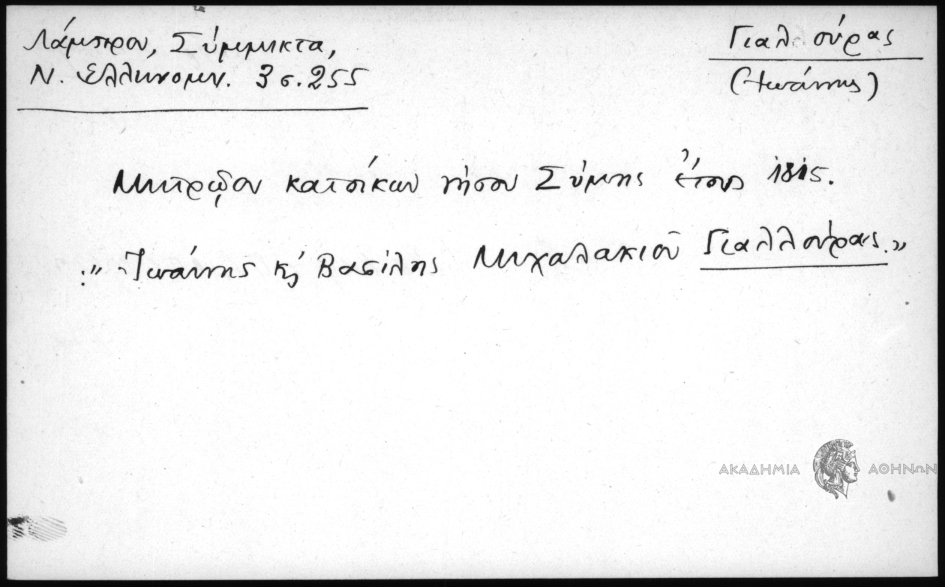 Λάμπρου, Σύμμικτα,
Ν. Ελληνομν. 3 σ. 255
Γιαλούρας
(Ἰωάννης)
Μητρῷον κατοίκων νήσου Σύμης ἔτους 1815.
:" Ἰωάννης κ Βασίλης Μιχαλακιοῦ Γιαλλούρας."
ΑΚΑΔΗΜΙΑ ΑΘΗΝΩΝ